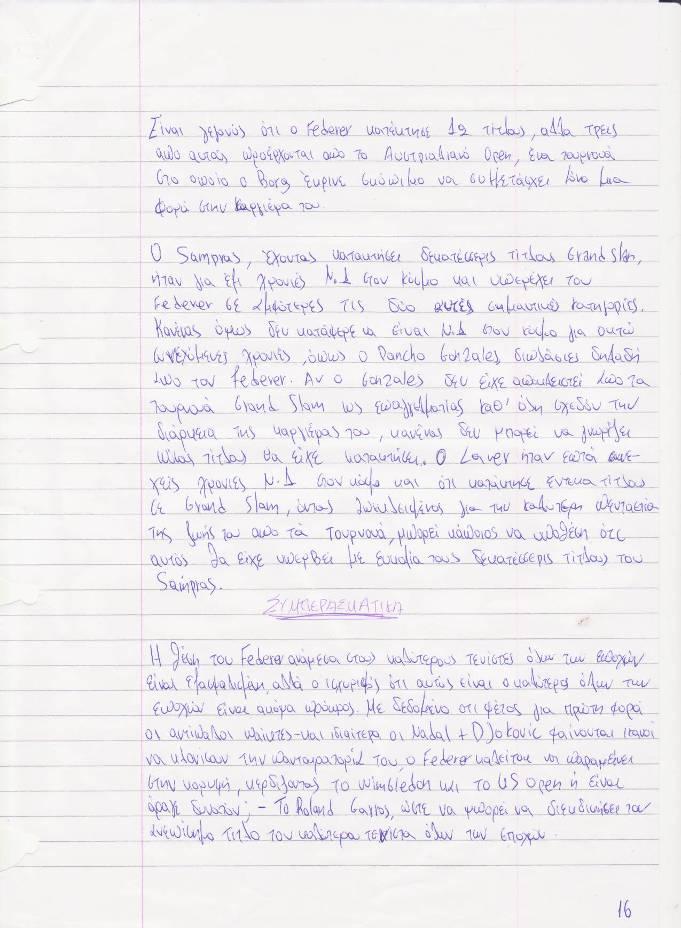 Είναι γεγονός ότι ο Federer κατέκτησε 12 τίτλους, αλλά τρεις
από αυτούς προέρχονται από το Αυστραλιανό Open, ένα τουρνουά
στο οποίο ο Borg έκρινε σκόπιμο να συμμετάσχει μόνο μια
φορά στην καριέρα του.
Ο Sampras, έχοντας κατακτήσει δεκατέσσερις τίτλους Grand Slam,
ήταν για έξι χρονιές Ν.1 στον κόσμο και υπερέχει του
Federer σε αμφότερες τις δύο αυτές σημαντικές κατηγορίες.
Κανένας όμως δεν κατάφερε να είναι Ν.1 στον κόσμο για οκτώ
συνεχόμενες χρονιές, όπως ο Pancho Gonzales, διπλάσιες δηλαδή
από τον Federer. Αν ο Gonzales δεν είχε αποκλειστεί από τα
τουρνουά Grand Slam ως επαγγελματίας καθ' όλη σχεδόν την
διάρκεια της καριέρας του, κανένας δεν μπορεί να γνωρίζει
πόσους τίτλους θα είχε κατακτήσει. Ο Laver ήταν επτά συνε-
χείς χρονιές Ν.1 στον κόσμο και ότι κατέκτησε έντεκα τίτλους
σε Grand Slam, όντας αποκλεισμένος για την καλύτερη πενταετία
της ζωής του από τα τουρνουά, μπορεί κάποιος να υποθέση ότι
αυτός θα είχε υπερβεί με ευκολία τους δεκατέσσερις τίτλους του
Sampras.
ΣΥΜΠΕΡΑΣΜΑΤΙΚΑ
Η θέση του Federer ανάμεσα στους καλύτερους τενίστες όλων των εποχών
είναι εξασφαλισμένη, αλλά ο ισχυρισμός ότι αυτός είναι ο καλύτερος όλων των
εποχών είναι ακόμα πρόωρος. Με δεδομένο ότι φέτος για πρώτη φορά
οι αντίπαλοι παίκτες - και ιδιαίτερα οι Nadal + Djokovic φαίνονται ικανοί
να κλονίσουν την παντοκρατορία του, ο Federer καλείται να παραμένει
στην κορυφή, κερδίζοντας το Wimbledon και το US Open ή είναι
άραγε δυνατόν; - Το Roland Garros, ώστε να μπορεί να διεκδικήσει τον
ανεπίσημο τίτλο του καλύτερα τενίστα όλων των εποχών.
16